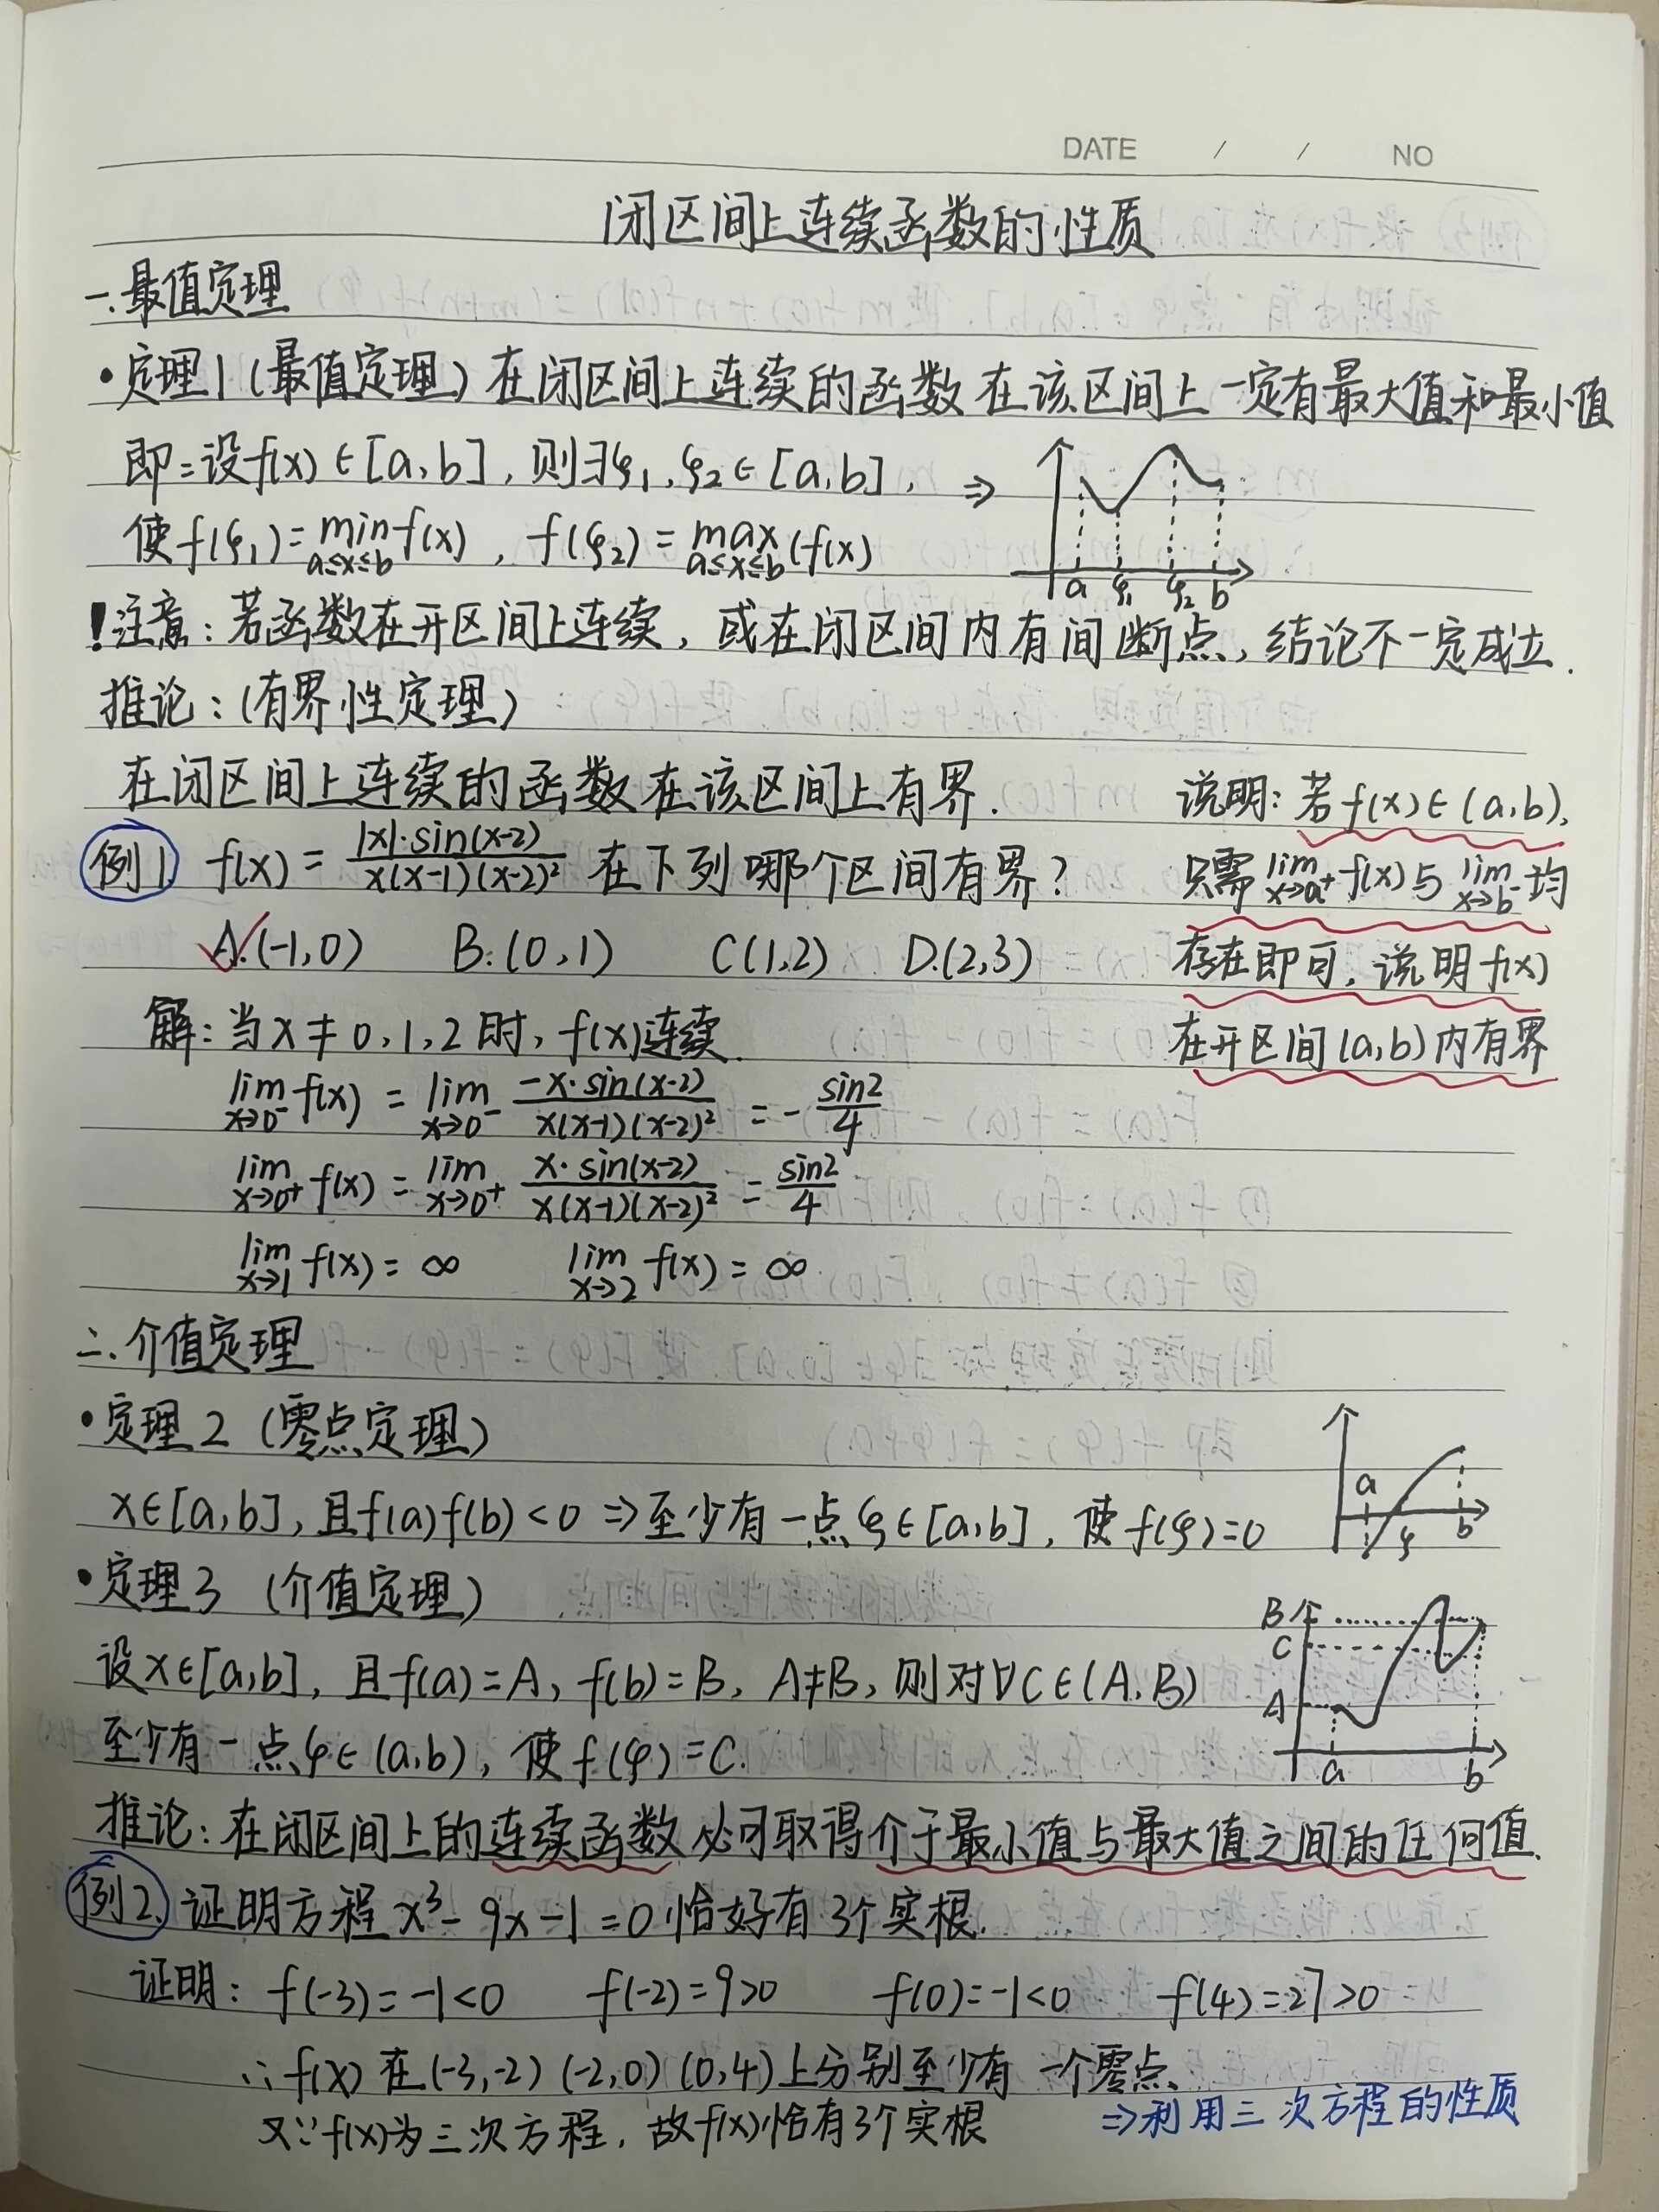 DATE / / NO
闭区间上连续函数的性质
一.最值定理
·定理1(最值定理)在闭区间上连续的函数在该区间上一定有最大值和最小值
即:设f(x)∈[a,b],则∃ξ₁,ξ₂∈[a,b], ⇒
使f(ξ₁)=min f(x) a≤x≤b , f(ξ₂)=max a≤x≤b (f(x)
a ξ₁ ξ₂ b
!注意:若函数在开区间上连续,或在闭区间内有间断点,结论不一定成立.
推论:(有界性定理)
在闭区间上连续的函数在该区间上有界.
说明:若f(x)∈(a,b),
只需lim x→a⁺ f(x)与lim x→b⁻均
存在即可,说明f(x)
在开区间(a,b)内有界
例1. f(x)=|x|·sin(x-2)/x(x-1)(x-2)² 在下列哪个区间有界?
✓A.(-1,0) B.(0,1) C(1,2) D.(2,3)
解:当x≠0,1,2时,f(x)连续.
lim x→0⁻ f(x) = lim x→0⁻ -x·sin(x-2)/x(x-1)(x-2)² = -sin2/4
lim x→0⁺ f(x) = lim x→0⁺ x·sin(x-2)/x(x-1)(x-2)² = sin2/4
lim x→1 f(x)=∞ lim x→2 f(x)=∞
二.介值定理
·定理2(零点定理)
x∈[a,b],且f(a)f(b)<0⇒至少有一点ξ∈[a,b],使f(ξ)=0
a ξ b
·定理3 (介值定理)
设x∈[a,b],且f(a)=A,f(b)=B,A≠B,则对∀C∈(A,B)
至少有一点ξ∈(a,b),使f(ξ)=C.
B
C
A
a b
推论:在闭区间上的连续函数必可取得介于最小值与最大值之间的任何值.
例2.证明方程x³-9x-1=0恰好有3个实根.
证明: f(-3)=-1<0 f(-2)=9>0 f(0)=-1<0 f(4)=27>0
∴f(x)在(-3,-2)(-2,0)(0,4)上分别至少有一个零点
又∵f(x)为三次方程,故f(x)恰有3个实根 ⇒利用三次方程的性质